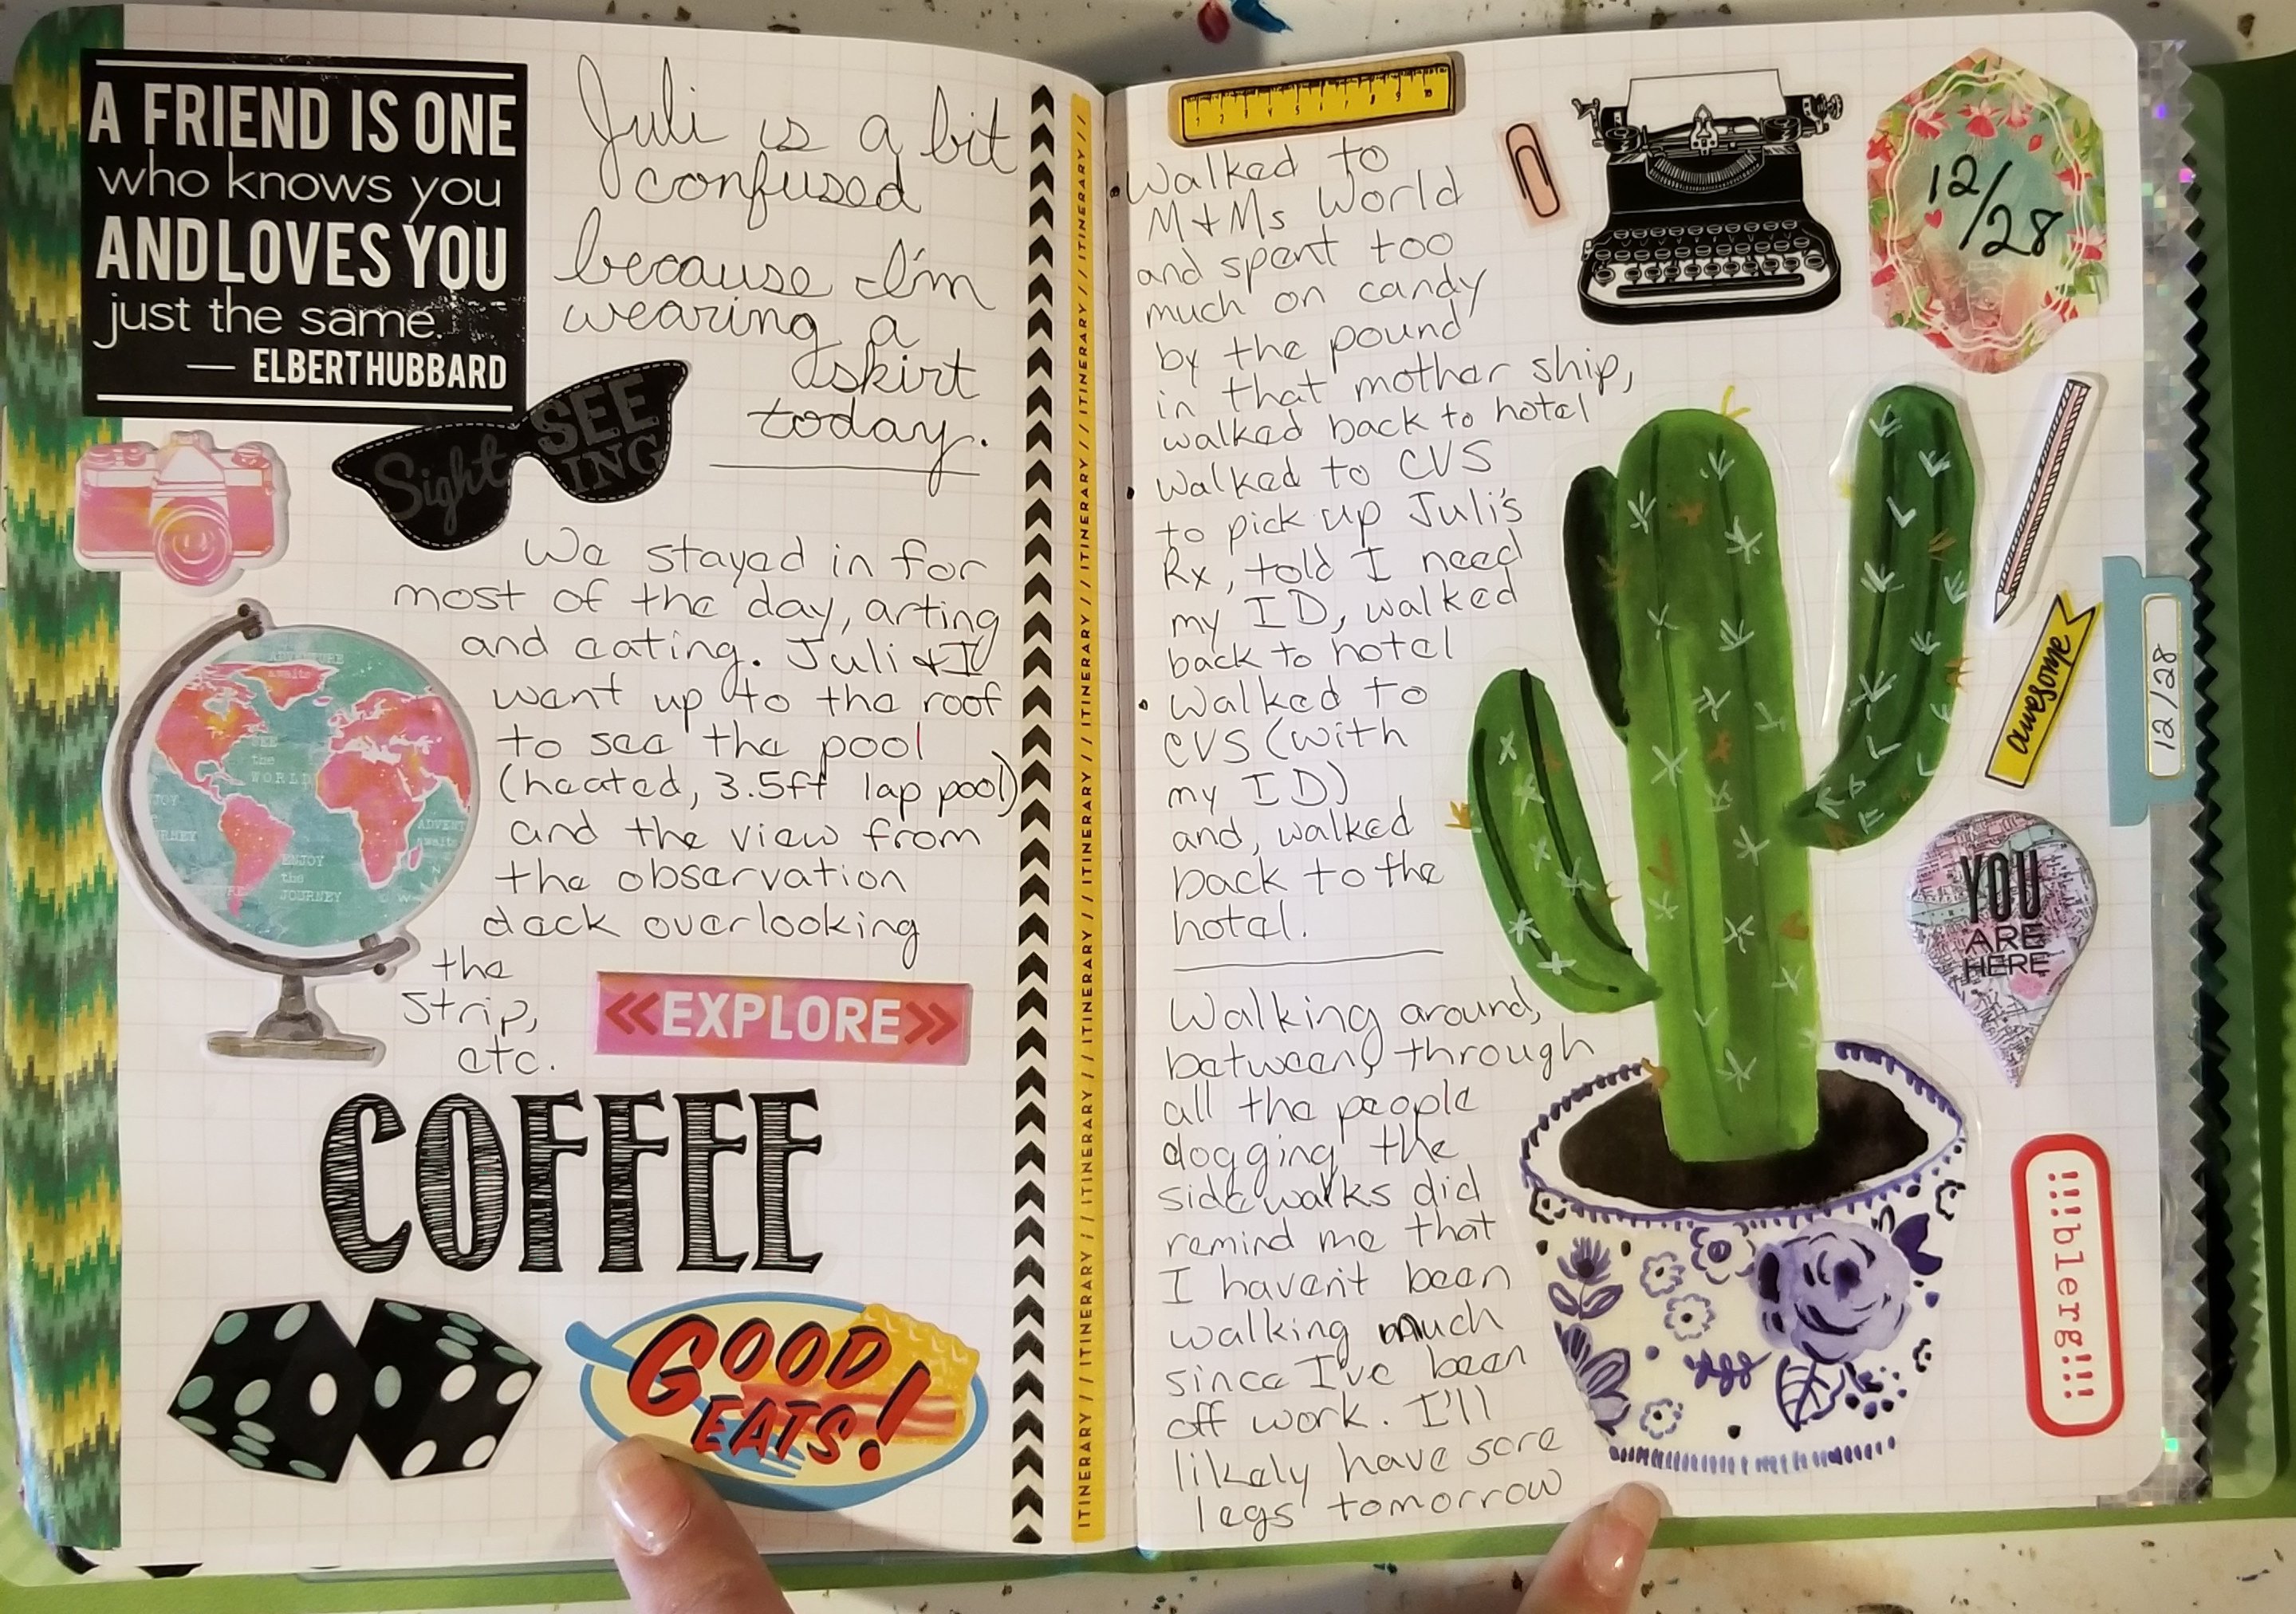 A FRIEND IS ONE
who knows you
AND LOVES YOU
just the same.
— ELBERT HUBBARD
Juli is a bit
confused
because I'm
wearing a
skirt
today.
Sight SEE
ING
We stayed in for
most of the day, arting
and eating. Juli & I
went up to the roof
to see the pool
(heated, 3.5ft lap pool)
and the view from
the observation
deck overlooking
the
strip,
etc.
ADVENTURE
awaits
SEE
the
WORLD
JOY
ADVENT
awaits
ENJOY
the
JOURNEY
<<EXPLORE>>
COFFEE
GOOD
EATS!
ITINERARY // ITINERARY // ITINERARY // ITINERARY // ITINERARY // ITINERARY // ITINERARY // ITINERARY // ITINERARY // ITINERARY // ITINERARY //
• Walked to
M+Ms World
and spent too
much on candy
by the pound
in that mother ship,
walked back to hotel
• Walked to CVS
to pick up Juli's
Rx, told I need
my ID, walked
back to hotel
• Walked to
CVS (with
my ID)
and, walked
back to the
hotel.
Walking around,
between, through
all the people
dogging the
sidewalks did
remind me that
I haven't been
walking much
since I've been
off work. I'll
likely have sore
legs tomorrow
12/
28
awesome
12/28
YOU
ARE
HERE
¡¡¡blerg¡¡¡